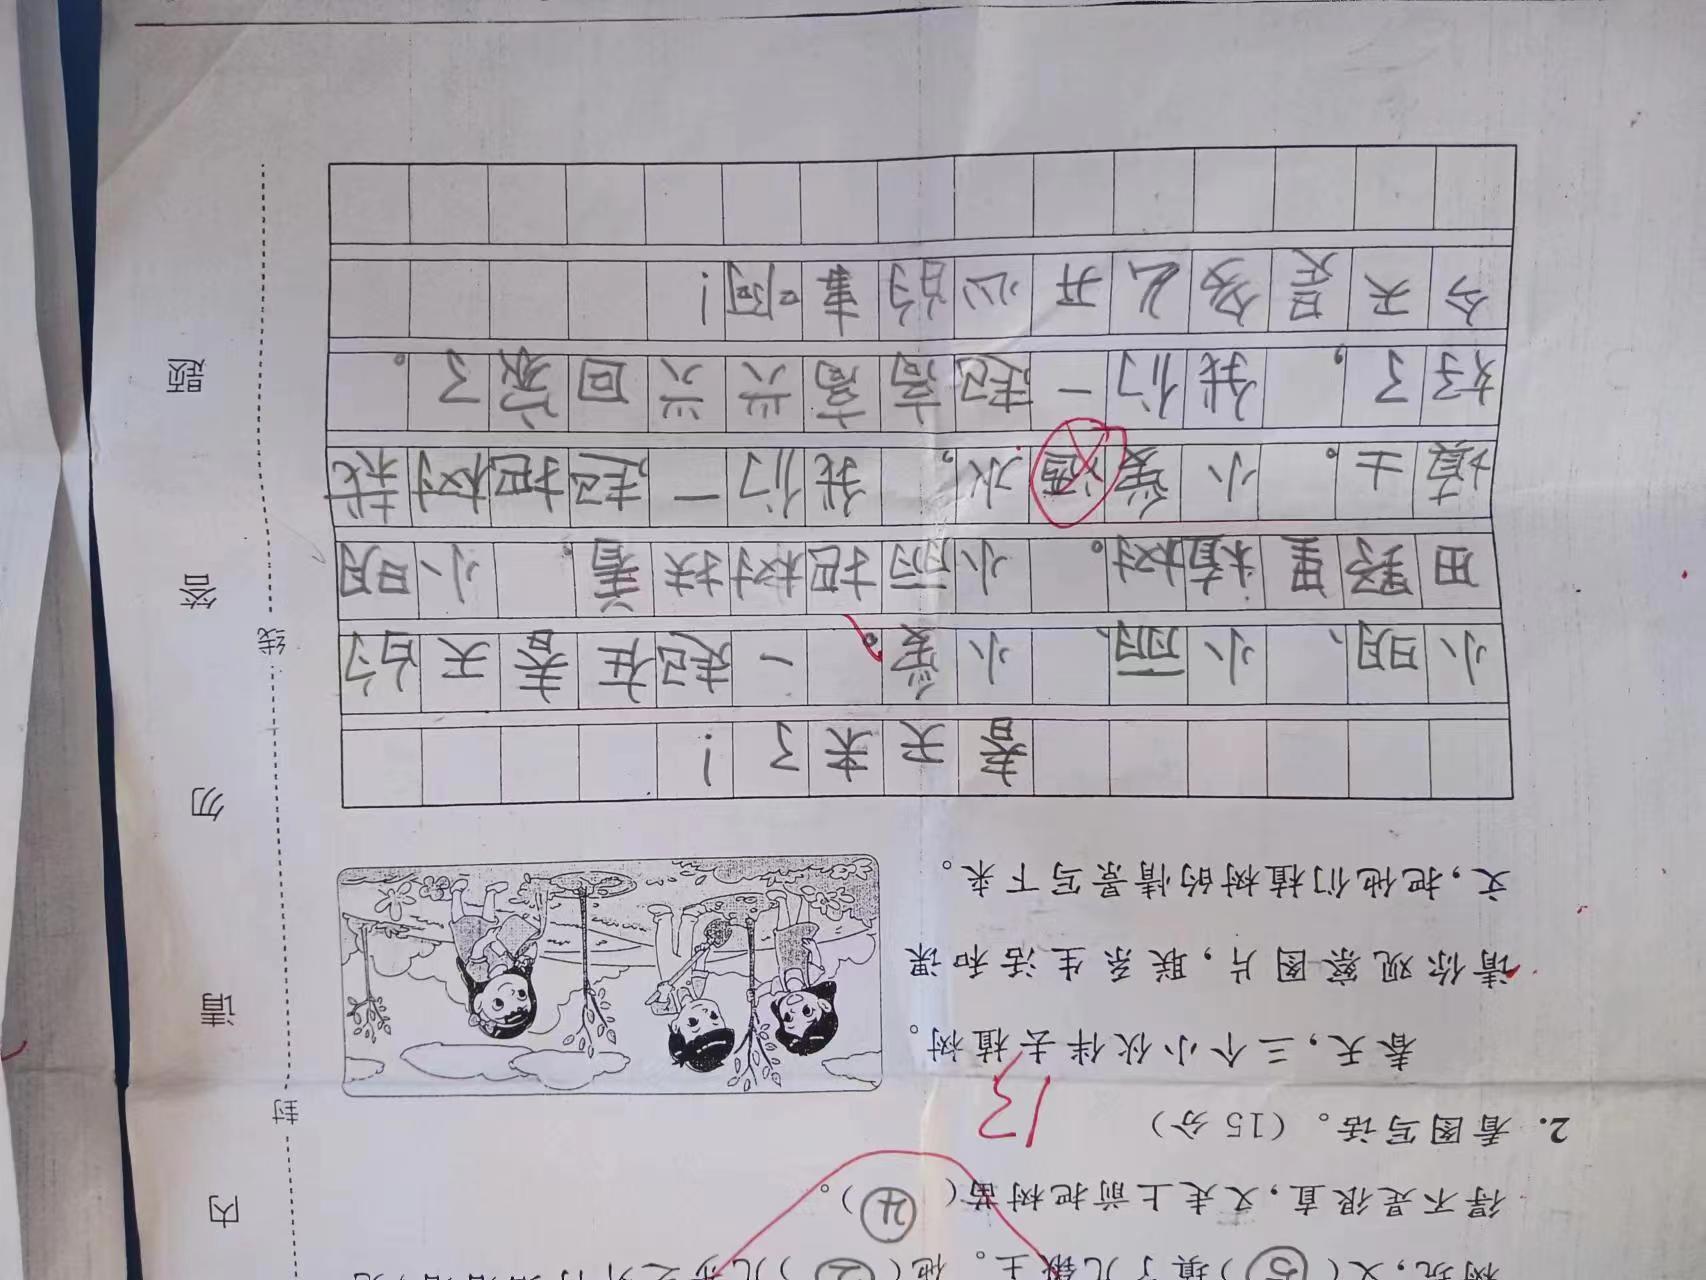 树坑,又(⑤)填了几锹土。他(②)几步之外
得不是很直,又走上前把树苗(④)。
2. 看图写话。(15分)
13
春天,三个小伙伴去植树。
请你观察图片,联系生活和课
文,把他们植树的情景写下来。
春天来了!
小明、小丽、小爱。一起在春天的
田野里植树。小丽把树扶着。小明
填土。小爱酒水,我们一起把树栽
好了,我们一起高高兴兴回家了。
今天是多么开心的事啊!
内 请 勿 答 题
封 线